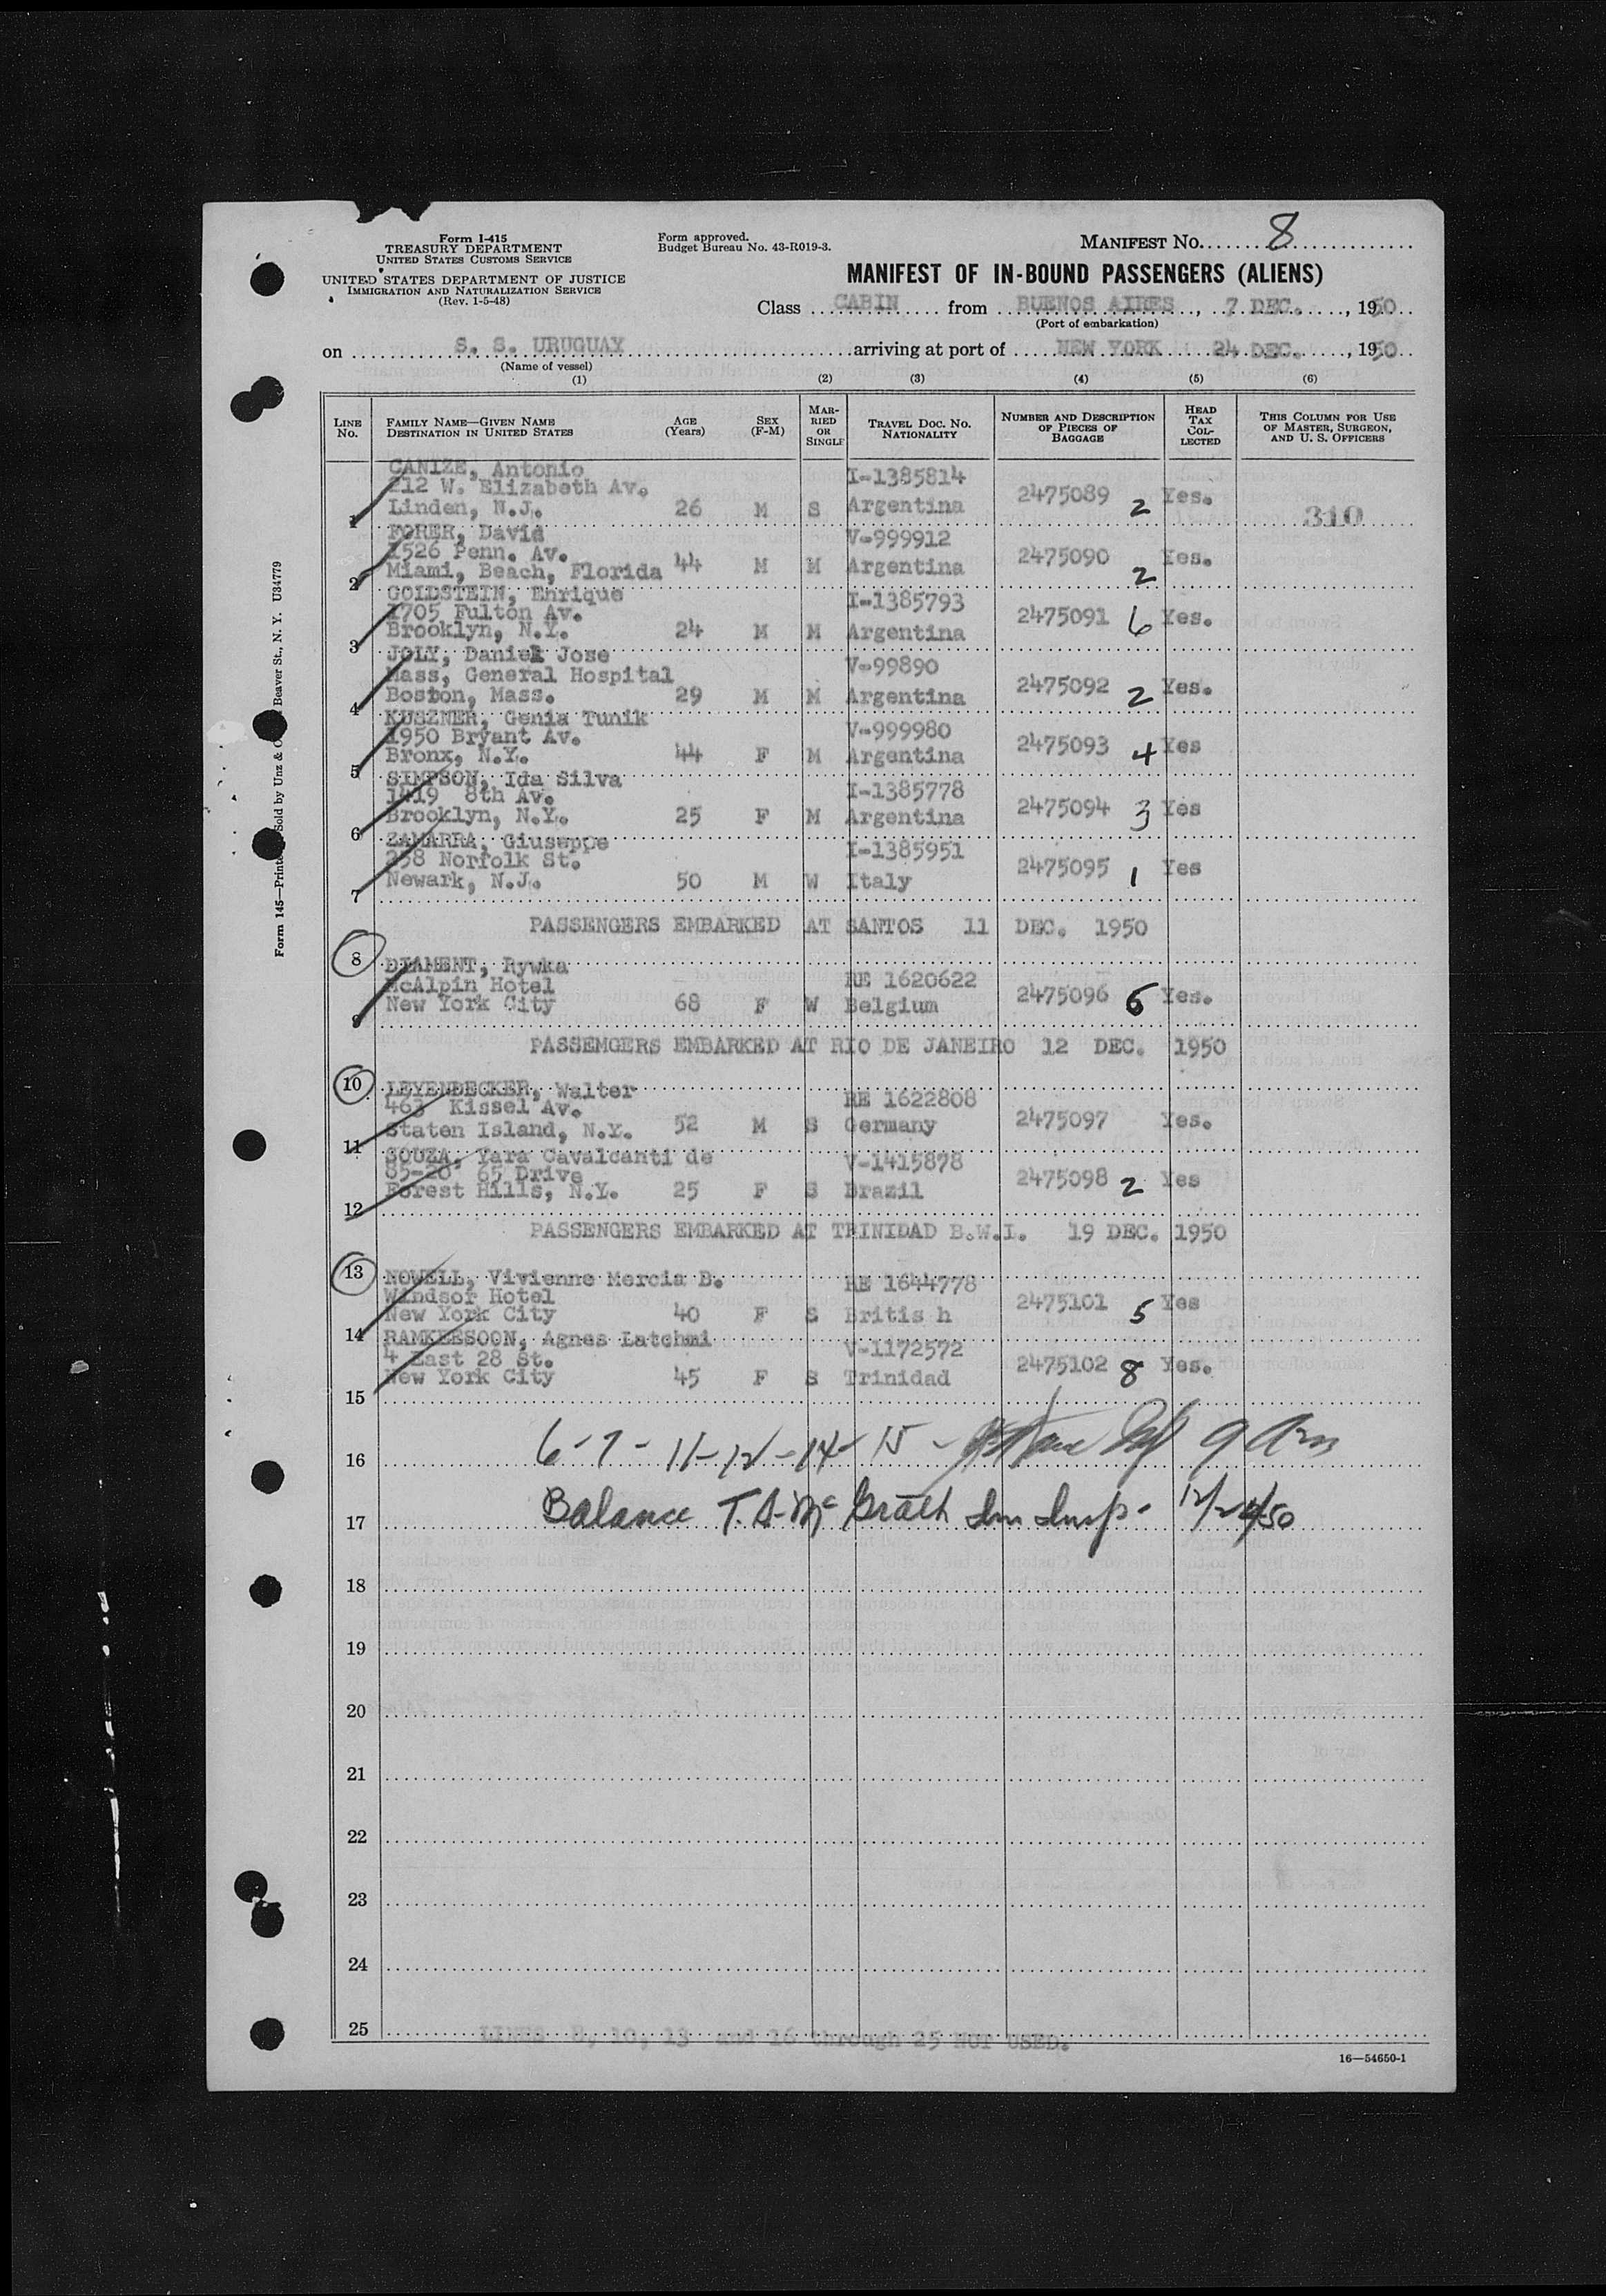 Form I-415
TREASURY DEPARTMENT
UNITED STATES CUSTOMS SERVICE
UNITED STATES DEPARTMENT OF JUSTICE
IMMIGRATION AND NATURALIZATION SERVICE
(Rev. 1-5-48)
Form approved.
Budget Bureau No. 43-R019-3.
MANIFEST No. 8
MANIFEST OF IN-BOUND PASSENGERS (ALIENS)
Class CABIN from BUENOS AIRES, 7 DEC., 1950
(Port of embarkation)
on S. S. URUGUAY arriving at port of NEW YORK 24 DEC., 1950
(Name of vessel)
(1) (2) (3) (4) (5) (6)
LINE No. FAMILY NAME—GIVEN NAME DESTINATION IN UNITED STATES AGE (Years) SEX (F-M) MARRIED OR SINGLE TRAVEL DOC. No. NATIONALITY NUMBER AND DESCRIPTION OF PIECES OF BAGGAGE HEAD TAX COLLECTED THIS COLUMN FOR USE OF MASTER, SURGEON, AND U. S. OFFICERS
CANIZE, Antonio I-1385814
212 W. Elizabeth Av. 2475089 2 Yes.
1 Linden, N.J. 26 M S Argentina 310
FORER, David V-999912
1526 Penn. Av. 2475090 2 Yes.
2 Miami, Beach, Florida 44 M M Argentina
GOLDSTEIN, Enrique I-1385793
1705 Fulton Av. 2475091 6 Yes.
3 Brooklyn, N.Y. 24 M M Argentina
JOLY, Daniel Jose V-99890
Mass, General Hospital 2475092 2 Yes.
4 Boston, Mass. 29 M M Argentina
KUSZNER, Genia Tunik V-999980
1950 Bryant Av. 2475093 4 Yes
5 Bronx, N.Y. 44 F M Argentina
SIMPSON, Ida Silva I-1385778
1419 8th Av. 2475094 3 Yes
6 Brooklyn, N.Y. 25 F M Argentina
ZAMARRA, Giuseppe I-1385951
258 Norfolk St. 2475095 1 Yes
7 Newark, N.J. 50 M W Italy
PASSENGERS EMBARKED AT SANTOS 11 DEC. 1950
8
DIAMENT, Rywka RE 1620622
McAlpin Hotel 2475096 6 Yes.
9 New York City 68 F W Belgium
PASSEMGERS EMBARKED AT RIO DE JANEIRO 12 DEC. 1950
10
LEYENDECKER, Walter RE 1622808
463 Kissel Av. 2475097 Yes.
11 Staten Island, N.Y. 52 M S Germany
SOUZA, Yara Cavalcanti de V-1415878
85-20 65 Drive 2475098 2 Yes
12 Forest Hills, N.Y. 25 F S Brazil
PASSENGERS EMBARKED AT TRINIDAD B.W.I. 19 DEC. 1950
13
NOWELL, Vivienne Mercia B. RE 1644778
Windsor Hotel 2475101 5 Yes
14 New York City 40 F S Britis h
RAMKEESOON, Agnes Latchmi V-1172572
4 East 28 St. 2475102 8 Yes.
15 New York City 45 F S Trinidad
16 6-7-11-12-14-15-
17 Balance T. A. McGrath Imm Insp. 12/24/50
18
19
20
21
22
23
24
25
LINES 8, 10, 13 and 16 through 25 NOT USED.
16—54650-1
Form 145—Printed Sold by Unz & Beaver St., N. Y. U34779